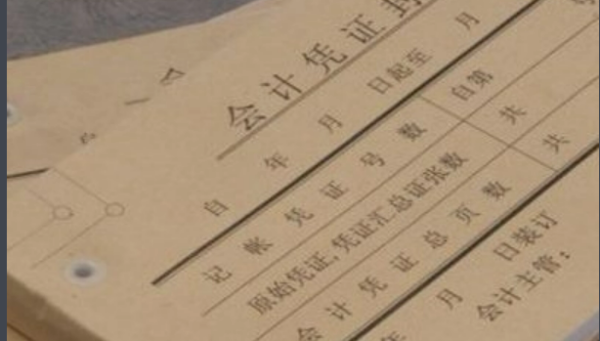 会计凭证封
自 年 月 日起至 月
记帐凭证号数 自第
原始凭证,凭证汇总证张数 共
会计凭证总页数 共
年 月 日装订
会计主管: